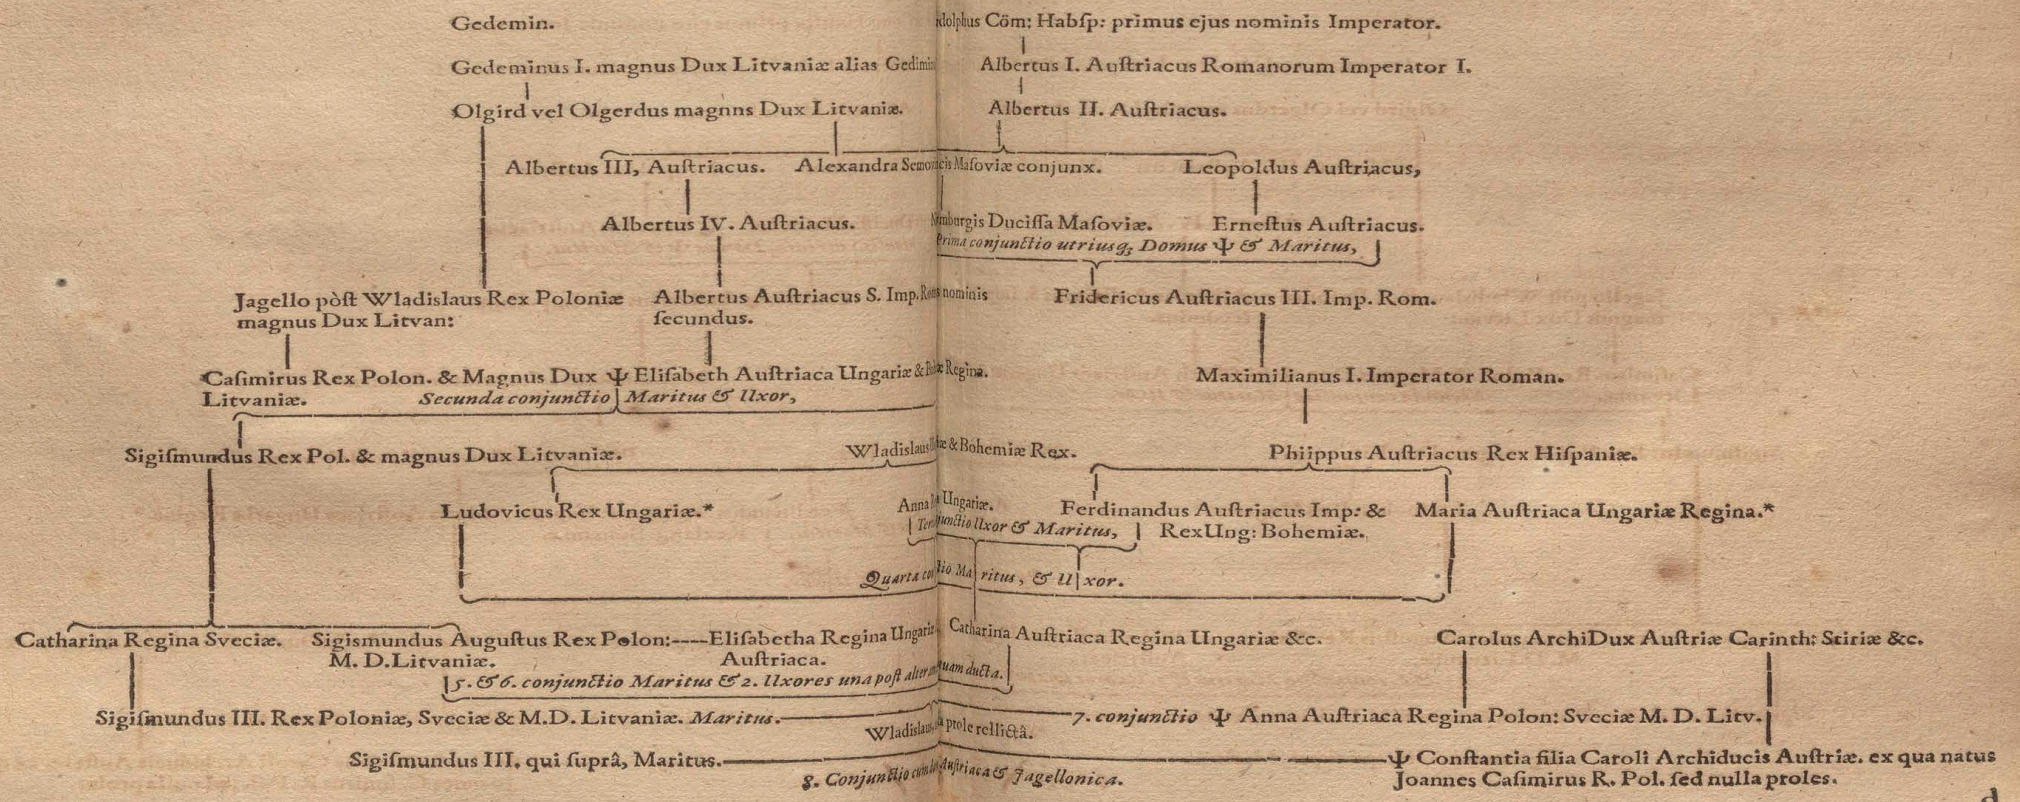 Gedemin.
Cöm: Habſp: primus ejus nominis Imperator.
Gedeminus I. magnus Dux Litvaniæ alias
Albertus I. Auſtriacus Romanorum Imperator I.
Olgird vel Olgerdus magnns Dux Litvaniæ.
Albertus II. Auſtriacus.
Albertus III, Auſtriacus.
Alexandra Maſoviæ conjunx.
Leopoldus Auſtriacus,
Albertus IV. Auſtriacus.
Duciſſa Maſoviæ.
Erneſtus Auſtriacus.
Prima conjunctio utriusq; Domus Ψ & Maritus,
Jagello pòſt Wladislaus Rex Poloniæ
magnus Dux Litvan:
Albertus Auſtriacus S. Imp. nominis
ſecundus.
Fridericus Auſtriacus III. Imp. Rom.
Caſimirus Rex Polon. & Magnus Dux Ψ Eliſabeth Auſtriaca Ungariæ & Regina.
Litvaniæ.
Secunda conjunctio Maritus & Uxor,
Maximilianus I. Imperator Roman.
Sigiſmundus Rex Pol. & magnus Dux Litvaniæ.
Wladislaus & Bohemiæ Rex.
Phiippus Auſtriacus Rex Hiſpaniæ.
Ludovicus Rex Ungariæ.*
Anna Ungariæ.
Uxor & Maritus,
Ferdinandus Auſtriacus Imp: &
RexUng: Bohemiæ.
Maria Auſtriaca Ungariæ Regina.*
Quarta Ma ritus, & U xor.
Catharina Regina Sveciæ.
Sigismundus Auguſtus Rex Polon:----Eliſabetha Regina
M. D. Litvaniæ.
Auſtriaca.
Catharina Auſtriaca Regina Ungariæ &c.
Carolus ArchiDux Auſtriæ Carinth: Stiriæ &c.
5. & 6. conjunctio Maritus & 2. Uxores una poſt ducta.
Sigiſmundus III. Rex Poloniæ, Sveciæ & M.D. Litvaniæ. Maritus.
7. conjunctio Ψ Anna Auſtriaca Regina Polon: Sveciæ M. D. Litv.
Wladislaus, prole rellictâ.
Sigiſmundus III. qui ſuprâ, Maritus.
Ψ Conſtantia filia Caroli Archiducis Auſtriæ. ex qua natus
Joannes Caſimirus R. Pol. ſed nulla proles.
8. Conjunctio Auſtriaca & Jagellonica.